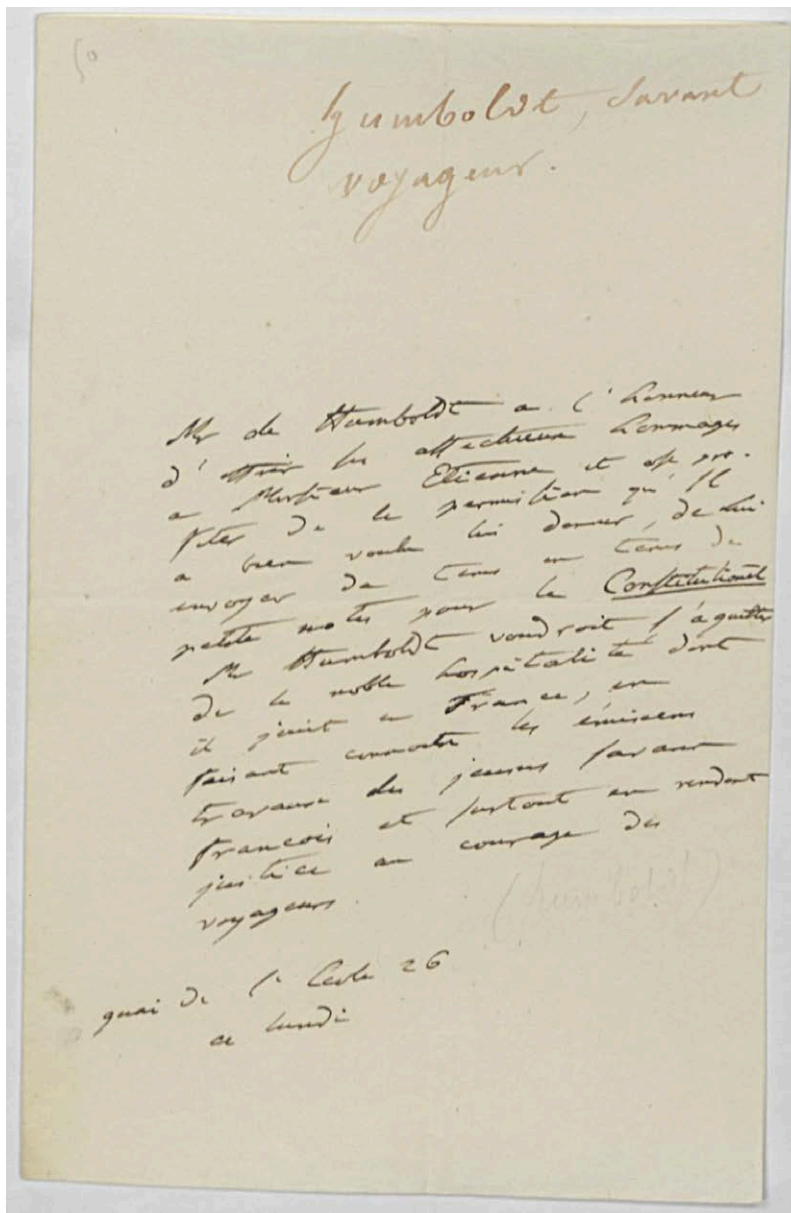 50
humboldt, savant
voyageur.
Mr de Humboldt a l'honneur
d'offrir les affectueux hommages
a Monsieur Etienne et ose pro-
fiter de la permission qu'Il
a bien voulu lui donner, de lui
envoyer de tems en tems de
petites notes pour le Constitutionel
Mr Humboldt voudroit s'aquitter
de la noble hospitalité dont
il jouit en France, en
faisant connoitre les
travaux des jeunes savans
francois et surtout en rendant
justice au courage des
voyageurs.
(humboldt)
quai de l'Ecole 26
ce lundi